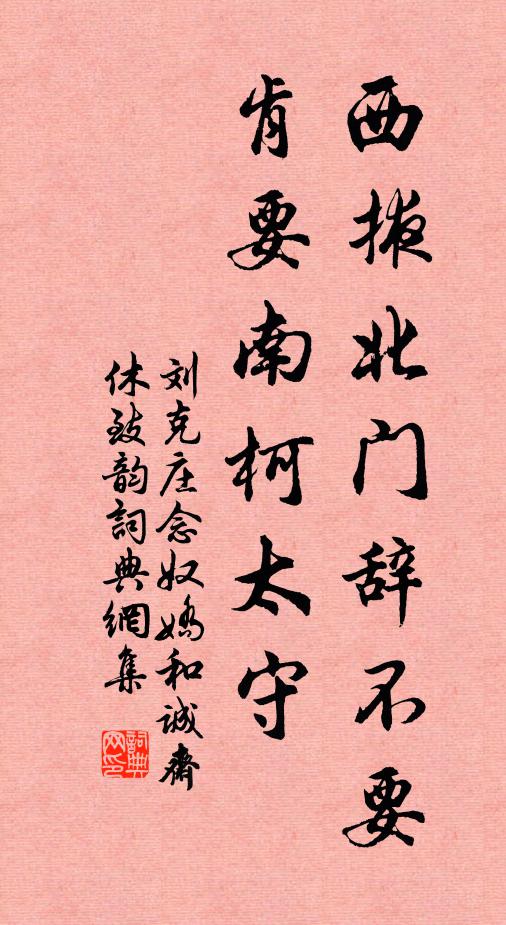 西掖北门辞不要
肯要南柯太守
刘克庄念奴娇和诚斋
休致韵詞典網集
詞典
网印